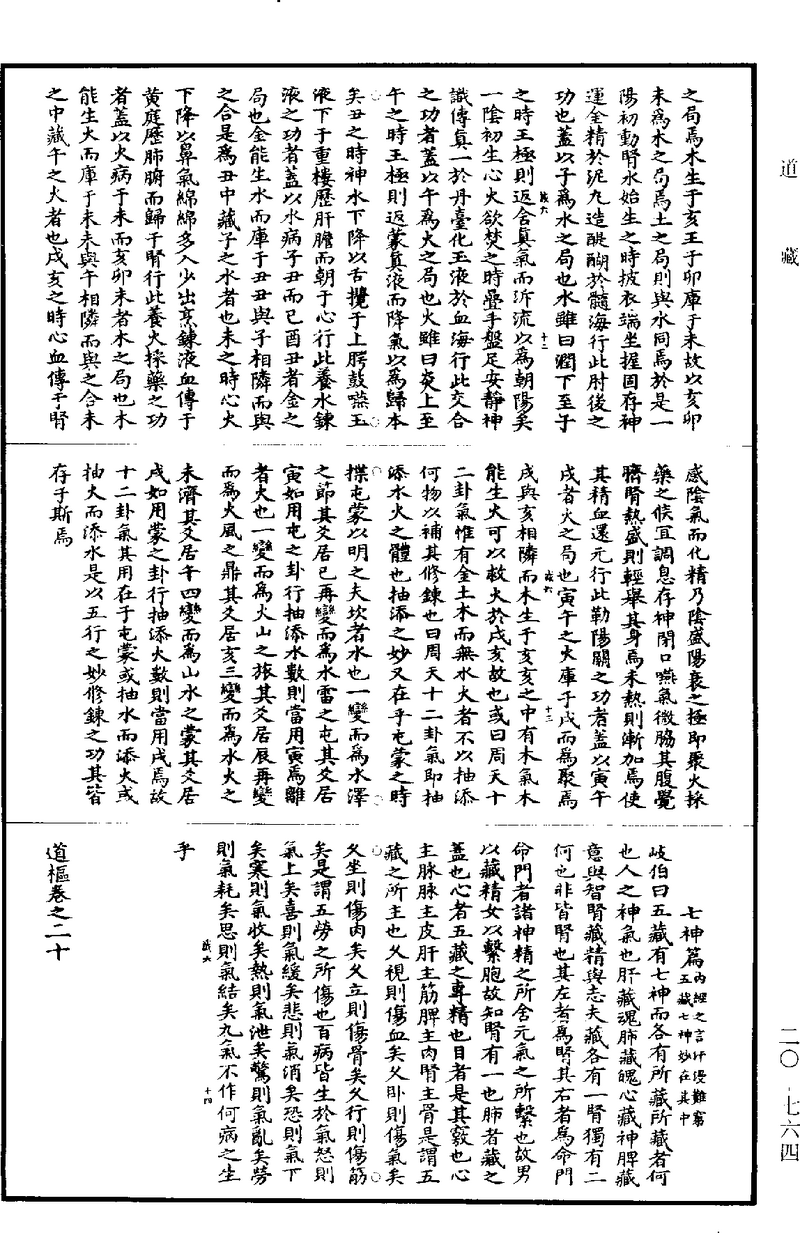 道藏
之局焉木生于亥王于卯庫于未故以亥卯
未爲木之局焉土之局則與水同焉於是一
陽初動腎水始生之時披衣端坐握固存神
運金精於泥丸造醍醐於髓海行此肘後之
功也蓋以子爲水之局也水雖曰潤下至子
之時王極則返舍眞氣而泝流以爲朝陽矣
一陰初生心火欲焚之時疊手盤足安靜神
識傳眞一於丹臺化玉液於血海行此交合
之功者蓋以午爲火之局也火雖曰炎上至
午之時王極則返蒙眞液而降氣以爲歸本
矣丑之時神水下降以舌攪于上腭鼓嚥玉
液下于重樓歷肝膽而朝于心行此養水鍊
液之功者蓋以水病子丑而已酉丑者金之
局也金能生水而庫于丑丑與子相隣而與
之合是爲丑中藏子之水者也未之時心火
下降以鼻氣綿綿多入少出烹鍊液血傳于
黃庭歷肺腑而歸于腎行此養火採藥之功
者蓋以火病于未而亥卯未者木之局也木
能生火而庫于未未與午相隣而與之合未
之中藏午之火者也戌亥之時心血傳于腎
感陰氣而化精乃陰盛陽衰之極即聚火採
藥之候宜調息存神閉口嚥氣微脇其腹覺
臍腎熱盛則輕舉其身焉未熱則漸加焉使
其精血還元行此勒陽關之功者蓋以寅午
戌者火之局也寅午之火庫于戌而爲聚焉
戌與亥相隣而木生于亥亥之中有木氣木
能生火可以救火於戌亥故也或曰周天十
二卦氣惟有金土木而無水火者不以抽添
何物以補其修鍊也曰周天十二卦氣即抽
添水火之體也抽添之妙又在乎屯蒙之時
揲屯蒙以明之夫坎者水也一變而爲水澤
之節其爻居已再變而爲水雷之屯其爻居
寅如用屯之卦行抽添水數則當用寅焉離
者火也一變而爲火山之旅其爻居辰再變
而爲火風之鼎其爻居亥三變而爲水火之
未濟其爻居午四變而爲山水之蒙其爻居
戌如用蒙之卦行抽添火數則當用戌焉故
十二卦氣其用在于屯蒙或抽水而添火或
抽火而添水是以五行之妙修鍊之功其皆
存于斯焉
七神篇內經之言汗漫難窮五藏七神妙在其中
岐伯曰五藏有七神而各有所藏所藏者何
也人之神氣也肝藏魂肺藏魄心藏神脾藏
意與智腎藏精與志夫藏各有一腎獨有二
何也非皆腎也其左者爲腎其右者爲命門
命門者諸神精之所舍元氣之所繫也故男
以藏精女以繫胞故知腎有一也肺者藏之
蓋也心者五藏之專精也目者是其竅也心
主脉肺主皮肝主筋脾主肉腎主骨是謂五
藏之所主也久視則傷血矣久臥則傷氣矣
久坐則傷肉矣久立則傷骨矣久行則傷筋
矣是謂五勞之所傷也百病皆生於氣怒則
氣上矣喜則氣緩矣悲則氣消矣恐則氣下
矣寒則氣收矣熱則氣泄矣驚則氣亂矣勞
則氣耗矣思則氣結矣九氣不作何病之生
乎
道樞卷之二十
二〇-七六四